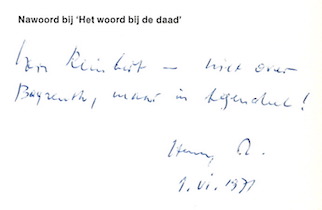 Nawoord bij 'Het woord bij de daad'
Voor Reinbert – niet over
Bayreuth, maar in tegendeel!
Harry M.
1.VI.1971